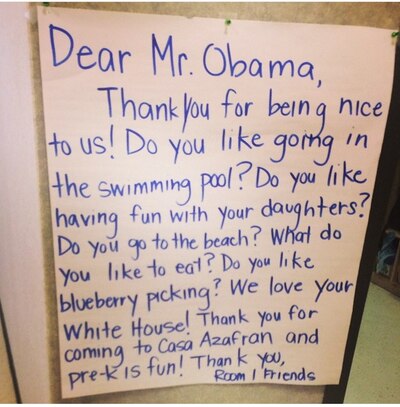 Dear Mr. Obama,
Thank you for being nice
to us! Do you like going in
the swimming pool? Do you like
having fun with your daughters?
Do you go to the beach? What do
you like to eat? Do you like
blueberry picking? We love your
White House! Thank you for
coming to Casa Azafran and
pre-k is fun! Thank you,
Room 1 Friends